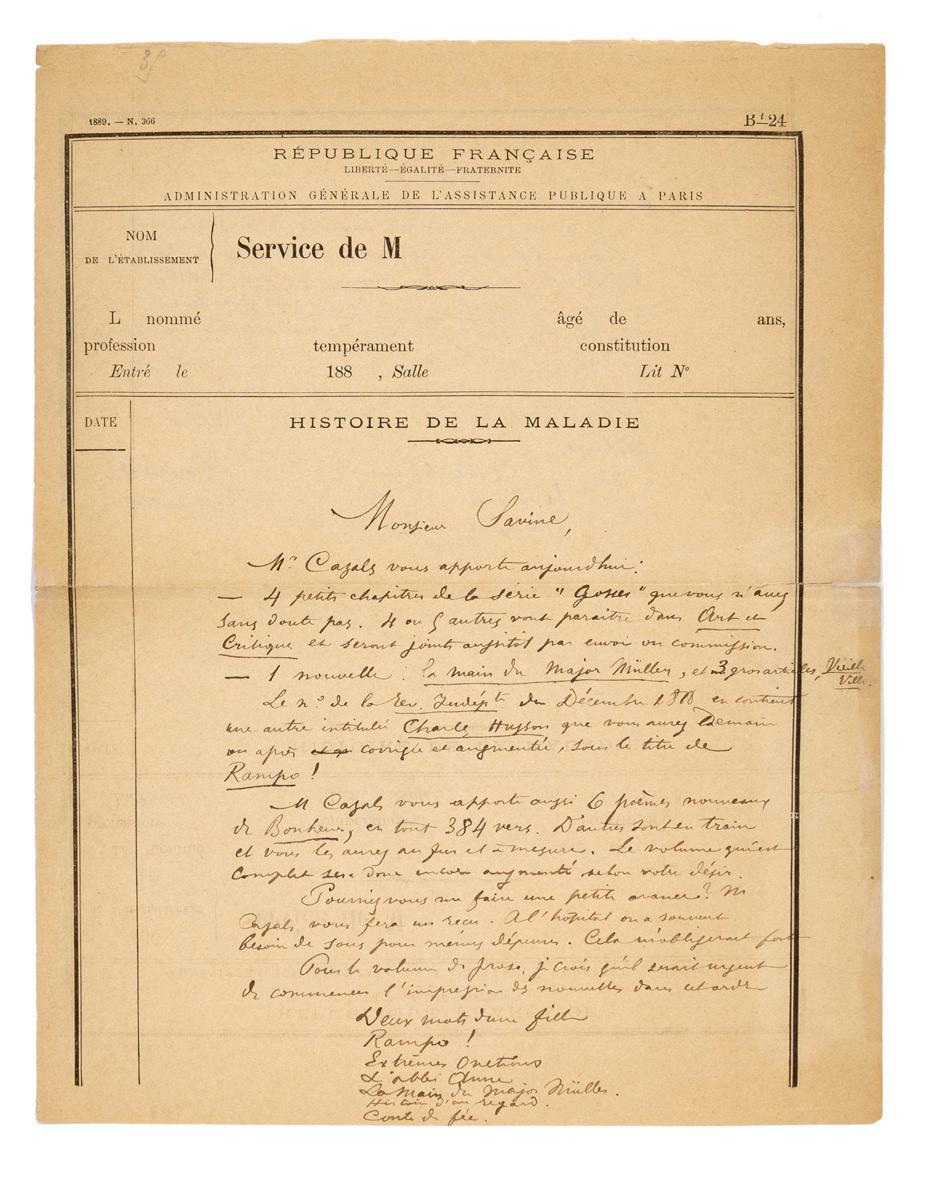 1889. — N. 366
Bᵗ-24
RÉPUBLIQUE FRANÇAISE
LIBERTÉ—ÉGALITÉ—FRATERNITÉ
ADMINISTRATION GÉNÉRALE DE L'ASSISTANCE PUBLIQUE A PARIS
NOM
DE L'ÉTABLISSEMENT
Service de M
L nommé âgé de ans,
profession tempérament constitution
Entré le 188 , Salle Lit Nº
DATE
HISTOIRE DE LA MALADIE
Monsieur Savine,
Mr Cazals vous apporte aujourdhui :
— 4 petits chapitres de la série "Gosses" que vous n'avez
sans doute pas. 4 ou 5 autres vont paraître dans Art et
Critique et seront joints aussitôt par envoi ou commission.
— 1 nouvelle. La main du Major Müller, et 3 gros articles, Vieille
Ville.
Le nº de la Rev. Indépte de Décembre 1888 en contient
une autre intitulée Charles Husson que vous aurez Demain
ou après corrigée et augmentée, sous le titre de
Rampo !
M Cazals vous apporte aussi 6 poèmes nouveaux
de Bonheur, en tout 384 vers. D'autres sont en train
et vous les aurez au fur et à mesure. Le volume qui est
complet sera donc encore augmenté selon votre désir.
Pourriez vous me faire une petite avance ? M
Cazals vous fera un reçu. A l'hôpital on a souvent
besoin de sous pour menues dépenses. Cela m'obligerait fort
Pour le volume de prose, je crois qu'il serait urgent
de commencer l'impression des nouvelles dans cet ordre
Deux mots d'une fille
Rampo !
Extrêmes Onctions
L'abbé Anne
La Main du Major Müller.
Histoire d'un regard.
Conte de fée.